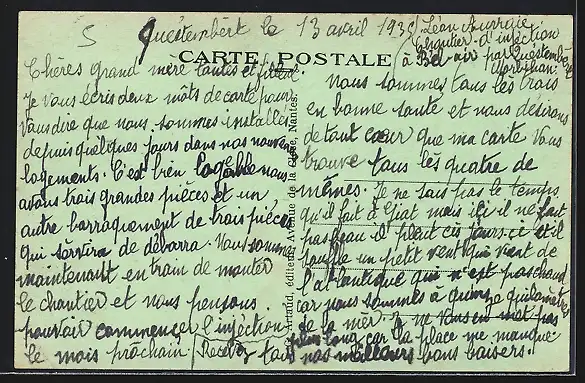 5 Questembert le 13 avril 1935
Léon Auvrgie
Chantier d'injection
à Bel-air par Questembert
Morbihan.
CARTE POSTALE
Chères grand mère tantes et filleul
Je vous écris deux môts de carte pour
vous dire que nous sommes installés
depuis quelques jours dans nos nouveaux
logements. C'est bien logeable nous
avons trois grandes pièces et un
autre barraquement de trois pièces
qui servira de débarra. Nous sommes
maintenant en train de monter
le chantier et nous pensons
pouvoir commencer l'injection
le mois prochain
Artaud, éditeur, Avenue de la Close, Nantes
Nous sommes tous les trois
en bonne santé et nous désirons
de tout cœur que ma carte vous
trouve tous les quatre de
mêmes. Je ne sais pas le temps
qu'il fait à Giat mais ici il ne fait
pas beau il pleut ces jours-ci et il
souffle un petit vent qui vient de
l'atlantique qui n'est pas chaud
car nous sommes à quinze quilomètres
de la mer. Je ne vous en met pas
plus long car la place me manque
Recevez tous nos meilleurs bons baisers.